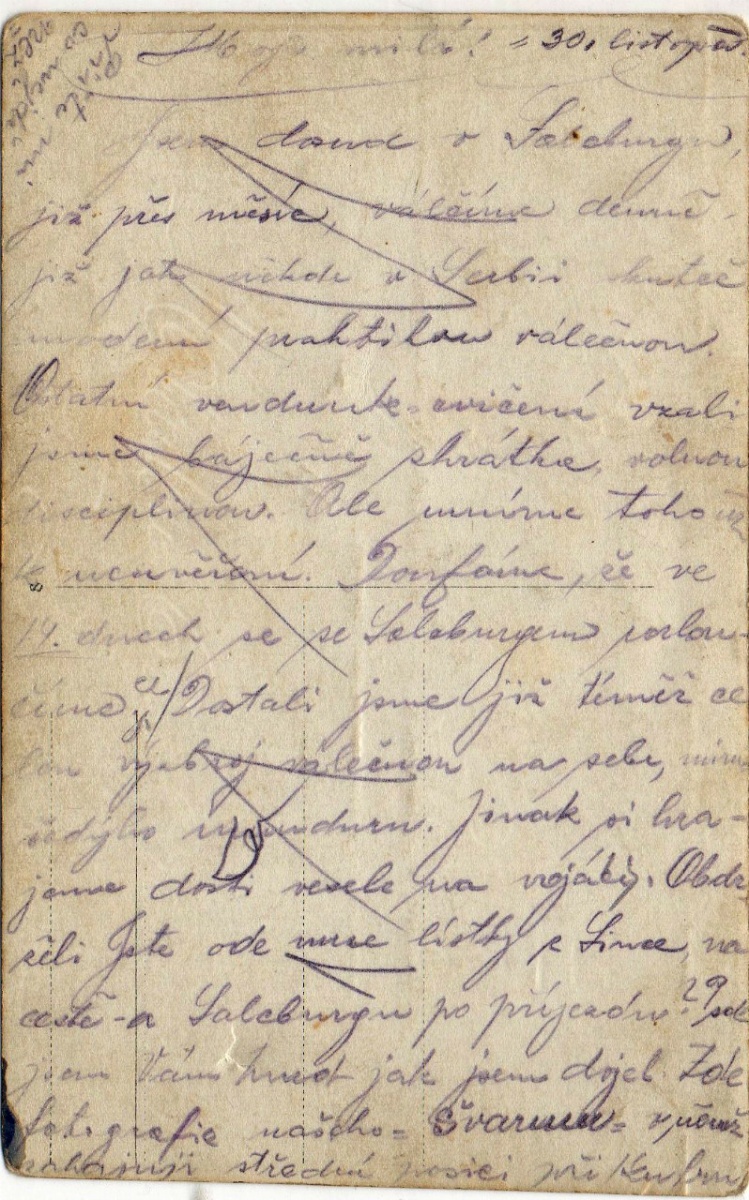 Moji milí! = 30. listopad.
Jsem dosud v Salcburgu,
již přes měsíc, válčíme denně-
již jak někde v Serbii
moderní praktikou válečnou.
Ostatní cvičení vzali
jsme báječně zkrátka, volnou
disciplinou. Ale umíme toho už
k neuvěření. Doufáme, že ve
14. dnech se se Salcburgem rozlou-
číme Dostali jsme již téměř ce
lou výzbroj válečnou na sebe, mimo
šedýho mundúru. Jinak si hra-
jeme dosti vesele na vojáky. Obdr-
želi Jste ode mne lístky z Lince, na
cestě-a Salcburgu po příjezdu?
jsem Vám hned jak jsem dojel. Zde
fotografie našeho= švarmu= v němž
střední posici při
Pište mi,
co mý
8